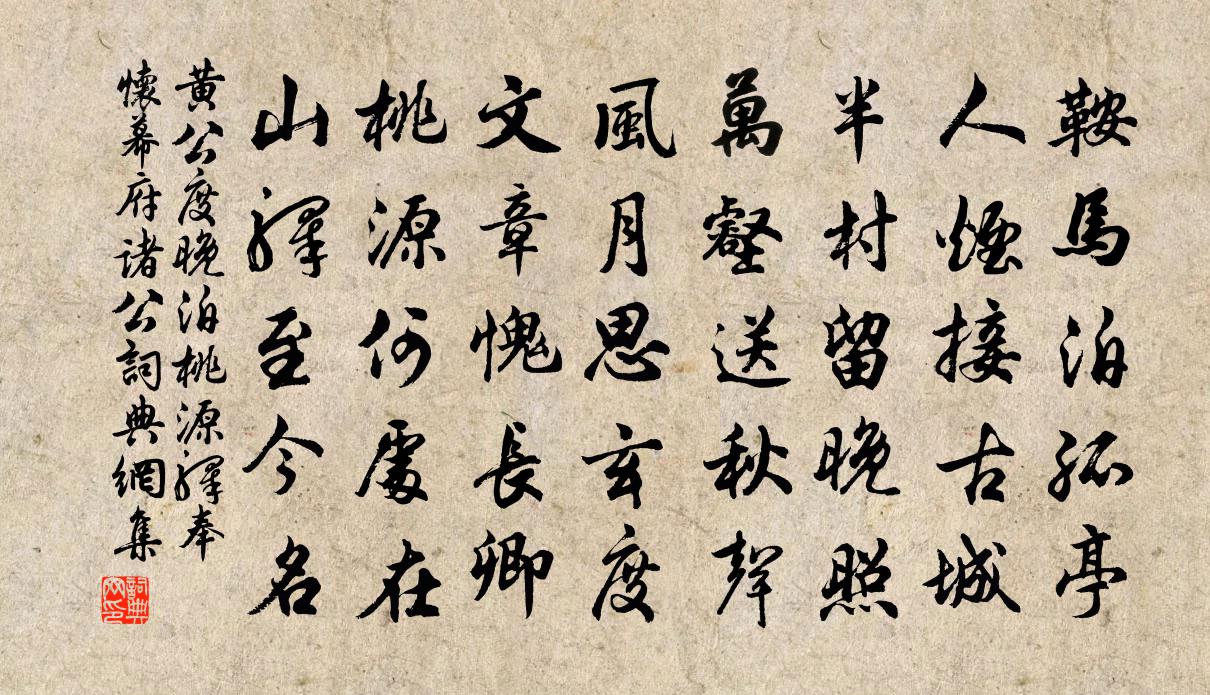 鞍馬泊孤亭
人煙接古城
半村留晚照
萬壑送秋聲
風月思玄度
文章愧長卿
桃源何處在
山驛至今名
黃公度晚泊桃源驛奉
懷幕府諸公詞典網集
詞典
网印